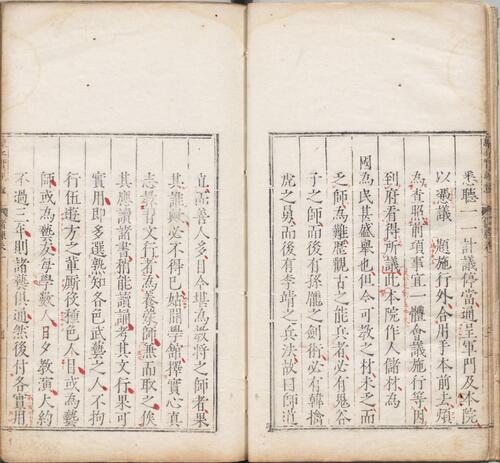 悉聽一一計議停當通呈軍門及本院
以憑議 題施行外合用手本前去煩
為查照前項事宜一體會議施行等因
到府看得所議此本院作人儲材為
國為民甚盛舉也但今可教之材未乏而
乏師為難歷觀古之能兵者必有鬼谷
子之師而後有孫臏之劍術必有韓擒
虎之舅而後有李靖之兵法故曰師道
立而善人多目今堪為教將之師者果
其難必不得已姑開學館擇實心真
志教習文行者為養蒙師無而取之俟
其應讀諸書稍能讀誦考其文行果可
實用即多選熟知各邑武藝之人不拘
行伍遊方之輩厮後種色人目或為藝
師或為藝友每學數人日夕教演大約
不過三年則諸藝俱通然後付各實用